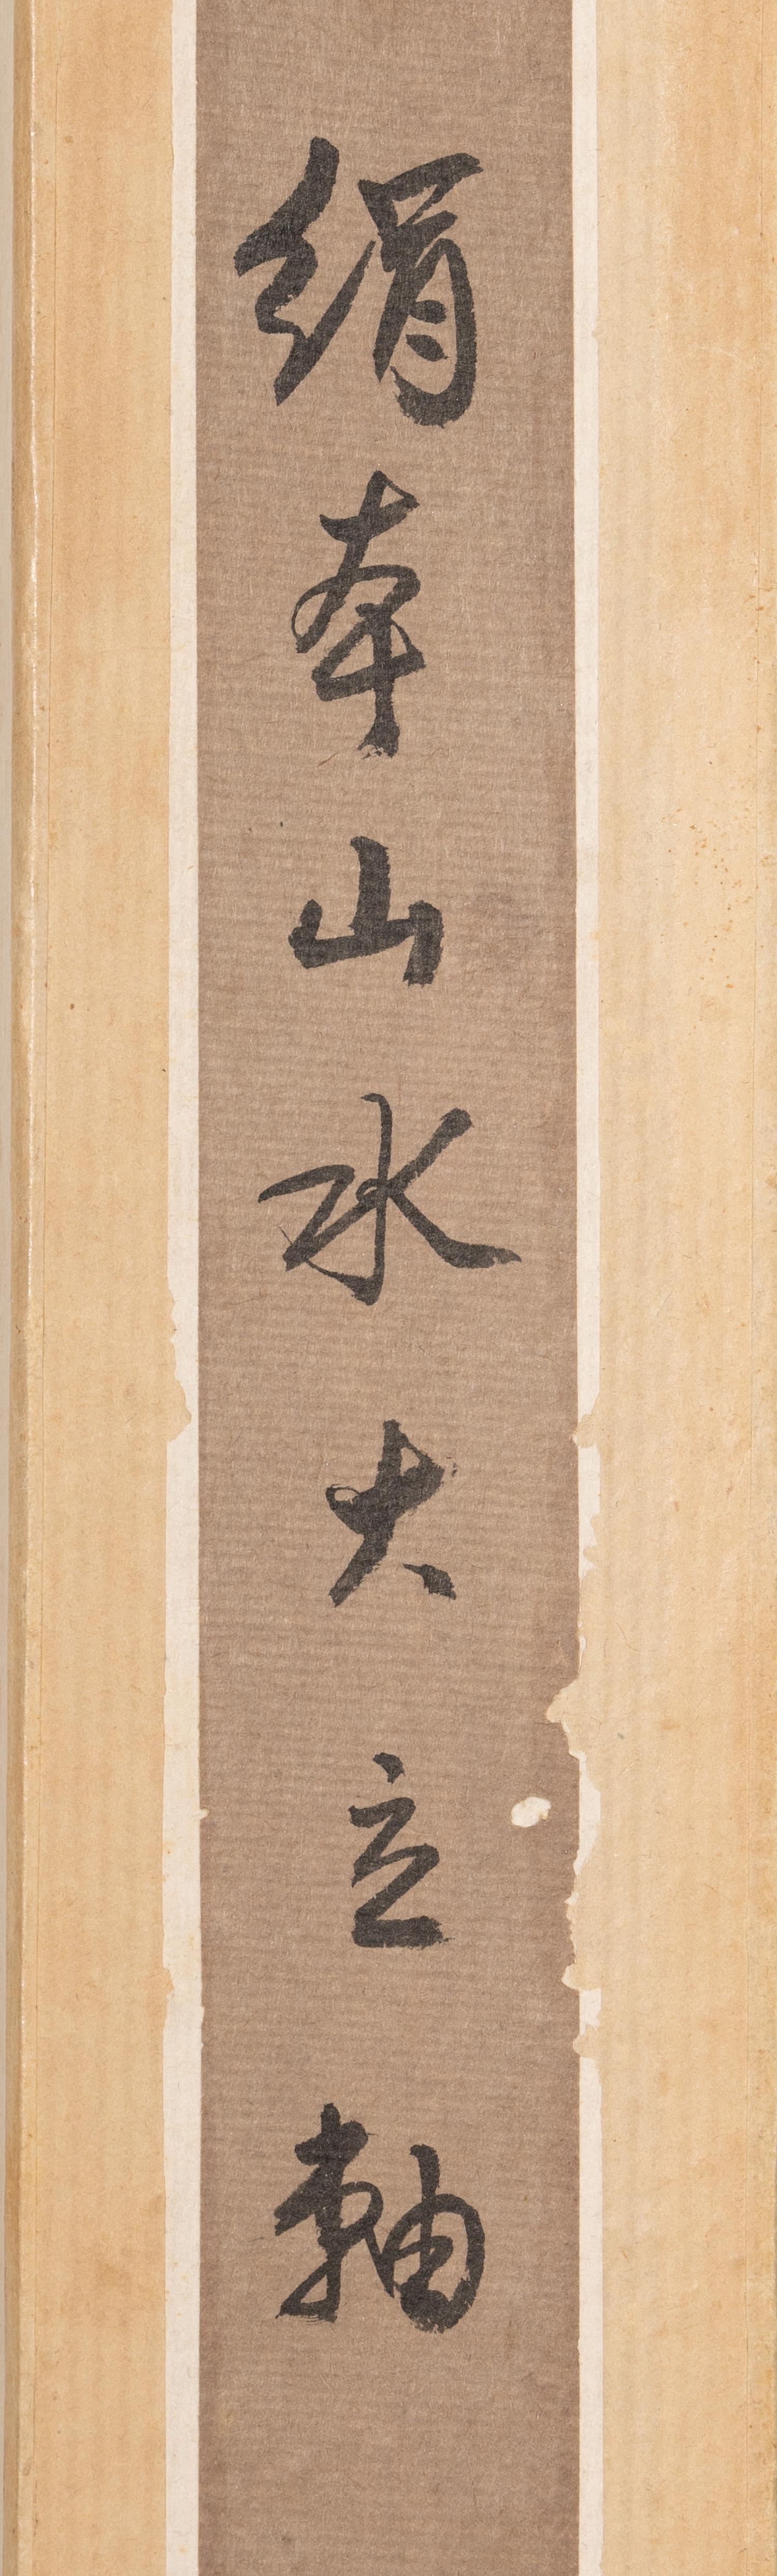 絹本山水大立軸